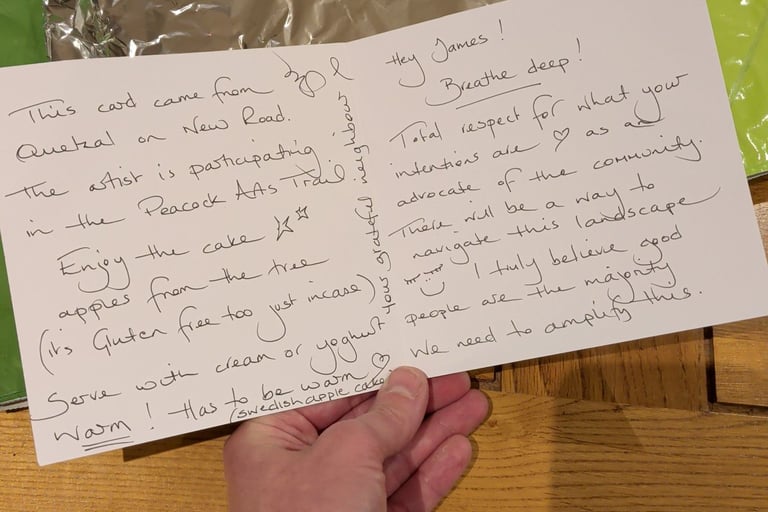 This card came from
Quetzal on New Road.
The artist is participating
in the Peacock Arts Trail
Enjoy the cake
apples from the tree
(it's Gluten free too just incase)
Serve with cream or yoghurt
warm! Has to be warm
(swedish apple cake)
your grateful neighbour
Hey James!
Breathe deep!
Total respect for what your
intentions are ♡ as an
advocate of the community.
There will be a way to
navigate this landscape
I truly believe good
people are the majority
We need to amplify this.